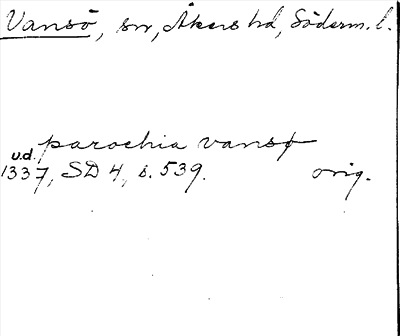 Vansö, sn, Åkers hd, Söderm. l.
parochia vansø
u.d.
1337, SD 4, s. 539. orig.